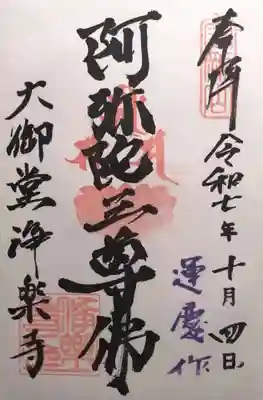 奉拝
令和七年十月四日
運慶作
阿弥陀三尊佛
大御堂浄楽寺